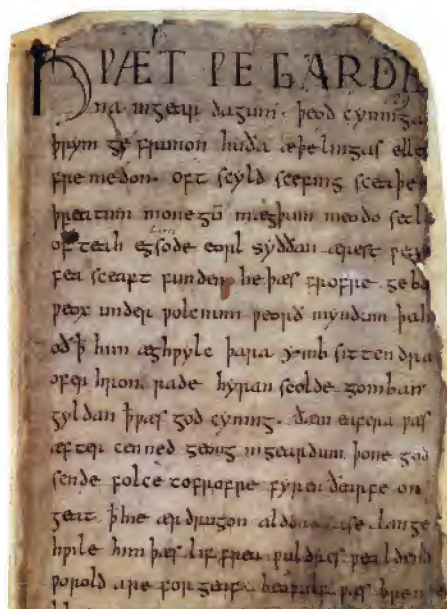 HǷÆT ǷE GARDE
na ingear dagum. þeod cyninga
þrym ge frunon huða æþelingas elle
fre medon. oft scyld scefing sceaþe
þreatum monegū mægþum meodo setla
of teah egsode eorl syððan ærest ƿea
fea sceaft funden he þæs frofre geba
ƿeox under ƿolcnum ƿeorð myndum þah
oð ꝥ him æghƿylc þara ymb sittendra
ofer hron rade hyran scolde gomban
gyldan ꝥ ƿæs god cyning. ðæm eafera ƿæs
æfter cenned geong ingeardum þone god
sende folce tofrofre fyren ðearfe on
geat ꝥ hie ær drugon aldor ase. lange
hƿile him þæs lif frea ƿuldres ƿealdend
ƿorold are for geaf. beoƿulf ƿæs breme